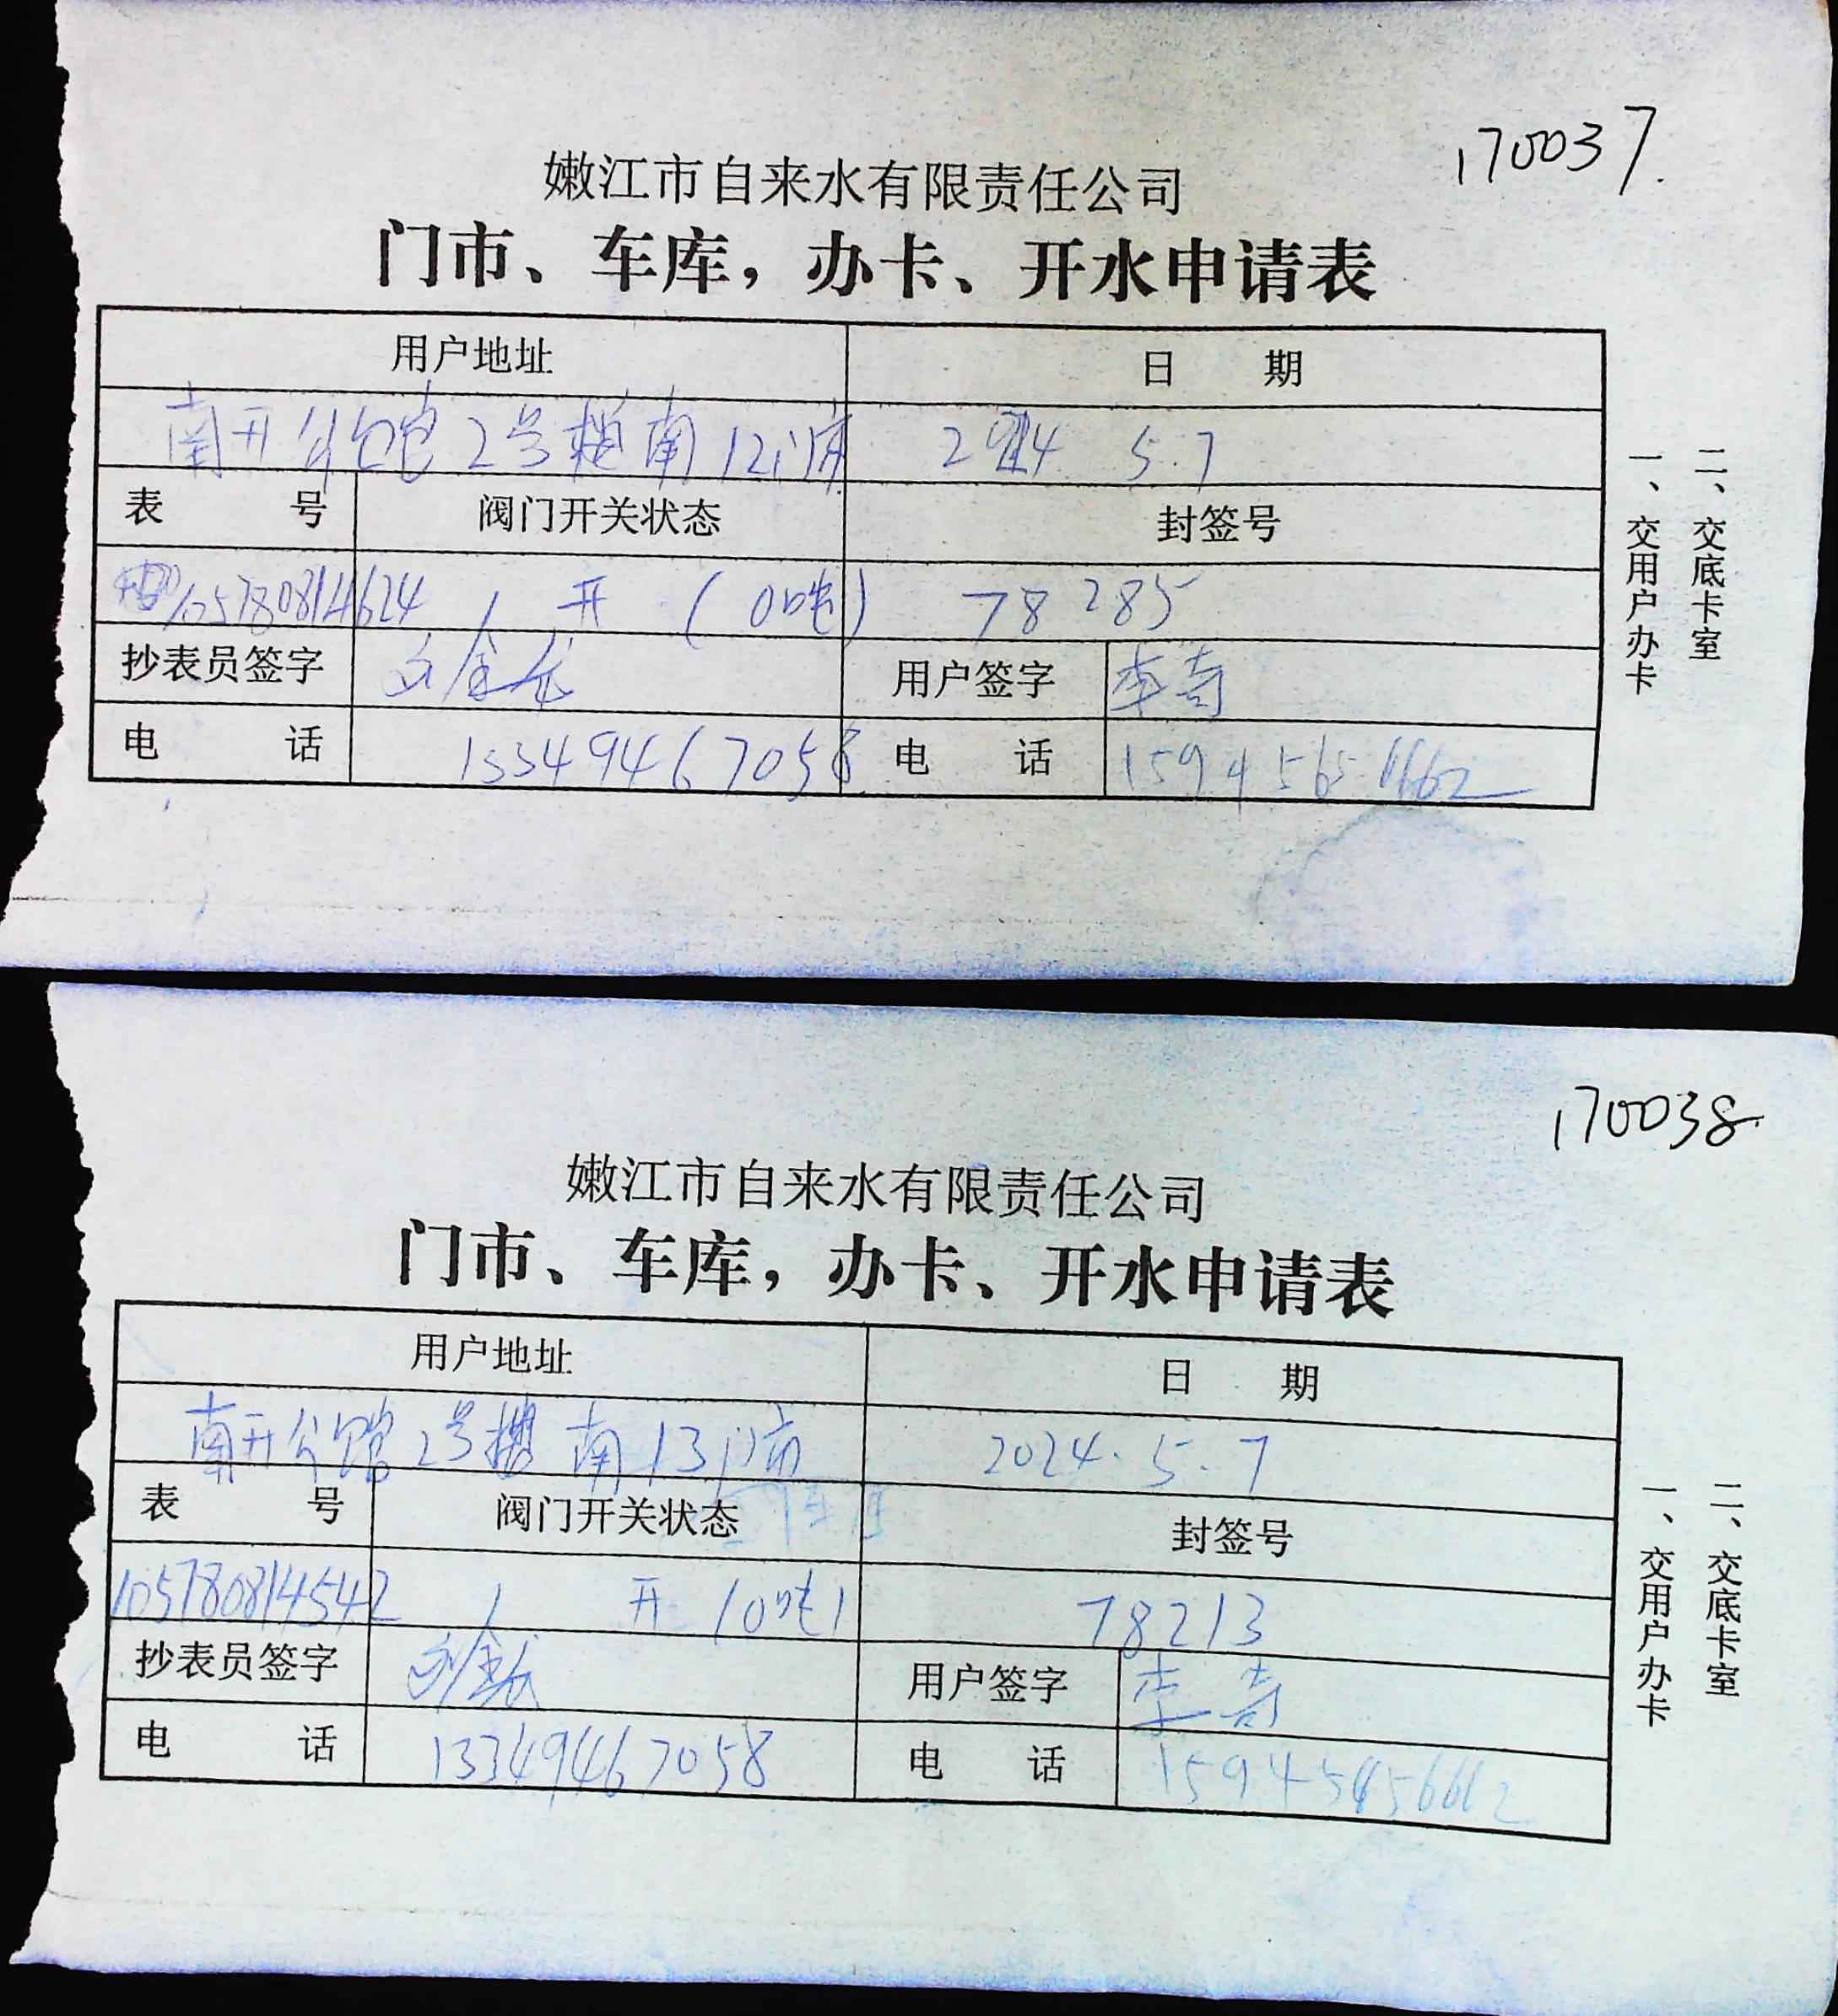 170037.
嫩江市自来水有限责任公司
门市、车库，办卡、开水申请表
用户地址 日 期
南开公馆2号楼南12门市 2024 5.7
表 号 阀门开关状态 封签号
105780814624 1 开 (0吨) 78285
抄表员签字 用户签字 李奇
电 话 13349467058 电 话
一、交用户办卡
二、交底卡室
170038
嫩江市自来水有限责任公司
门市、车库，办卡、开水申请表
用户地址 日 期
南开公馆2号楼 南13门市 2024.5.7
表 号 阀门开关状态 封签号
105780814542 1 开 (0吨) 78213
抄表员签字 用户签字 李奇
电 话 13349467058 电 话
一、交用户办卡
二、交底卡室